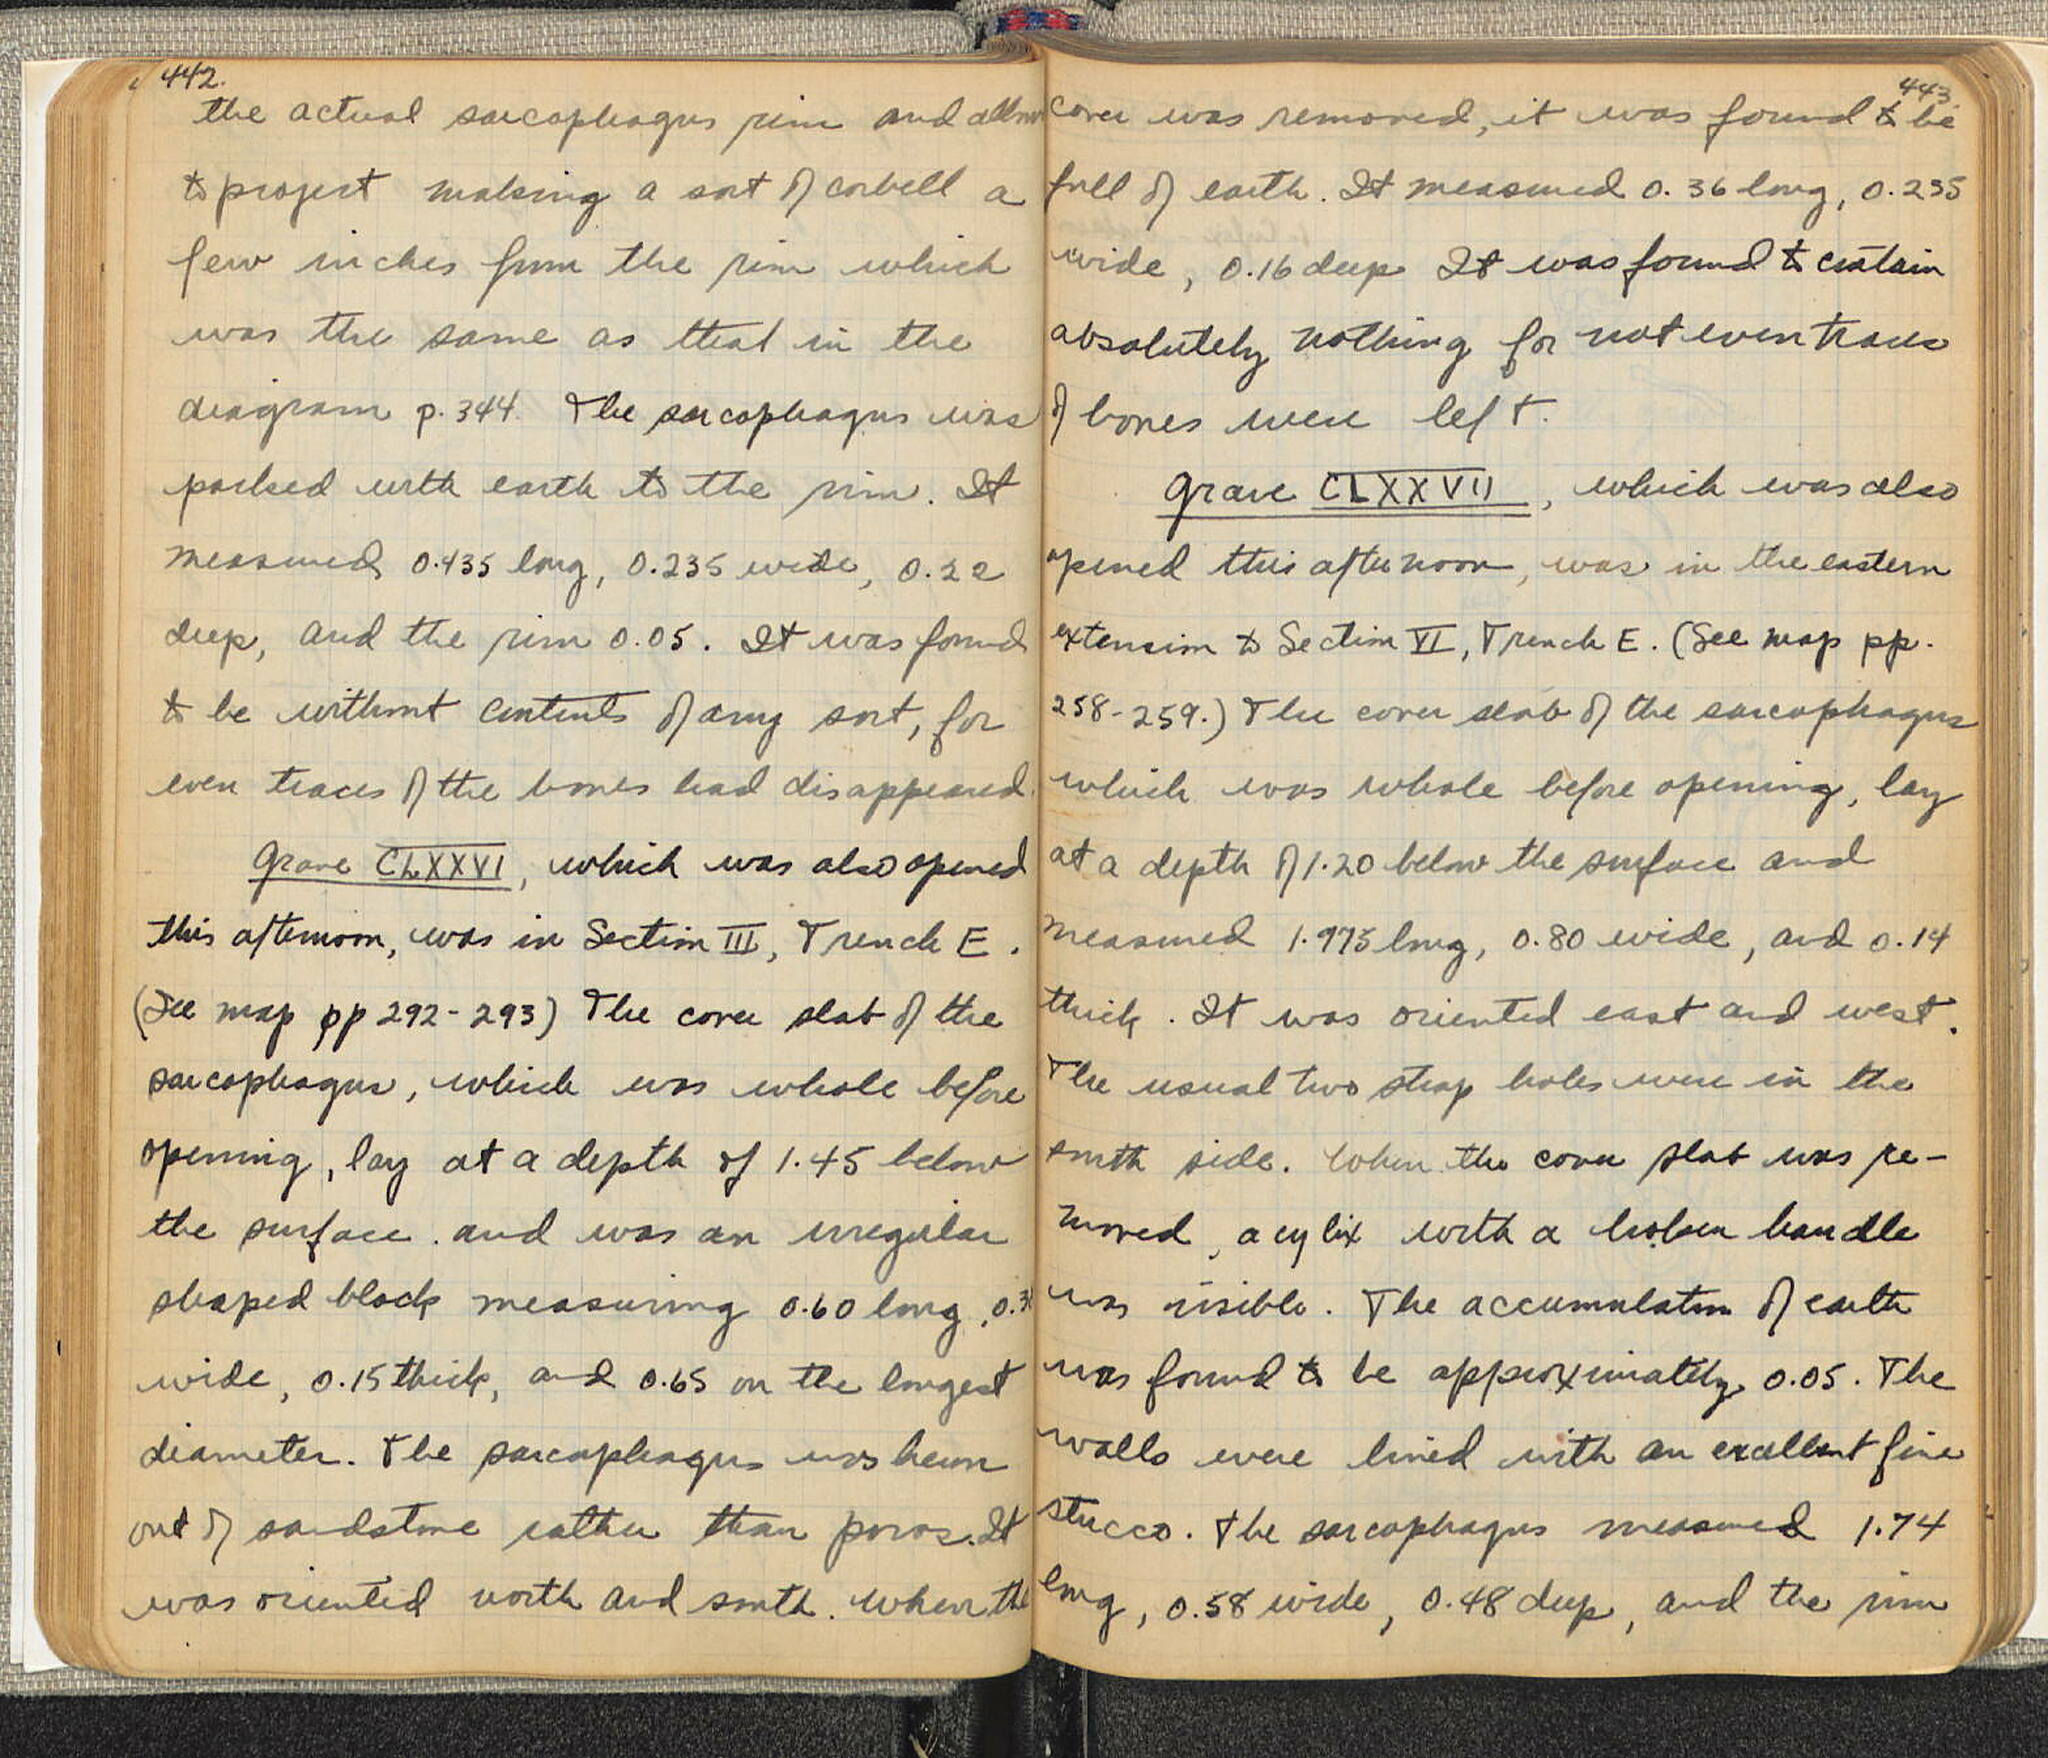 442.
the actual sarcophagus rim and allow
to project making a sort of corbell a
few inches from the rim which
was the same as that in the
diagram p. 344. The sarcophagus was
packed with earth to the rim. It
measured 0.435 long, 0.235 wide, 0.22
deep, and the rim 0.05. It was found
to be without contents of any sort, for
even traces of the bones had disappeared.
Grave CLXXVI, which was also opened
this afternoon, was in Section III, Trench E.
(See map pp 292-293) The cover slab of the
sarcophagus, which was whole before
opening, lay at a depth of 1.45 below
the surface. and was an irregular
shaped block measuring 0.60 long,
wide, 0.15 thick, and 0.65 on the longest
diameter. The sarcophagus was hewn
out of sandstone rather than poros. It
was oriented north and south. When the
443.
cover was removed, it was found to be
full of earth. It measured 0.36 long, 0.235
wide, 0.16 deep It was found to contain
absolutely nothing for not even traces
of bones were left.
Grave CLXXVII, which was also
opened this afternoon, was in the eastern
extension to Section VI, Trench E. (See map pp.
258-259.) The cover slab of the sarcophagus
which was whole before opening, lay
at a depth of 1.20 below the surface and
measured 1.975 long, 0.80 wide, and 0.14
thick. It was oriented east and west.
The usual two strap holes were in the
south side. When the cover slab was re-
moved, a cylix with a broken handle
was visible. The accumulation of earth
was found to be approximately 0.05. The
walls were lined with an excellent fine
stucco. The sarcophagus measured 1.74
long, 0.58 wide, 0.48 deep, and the rim